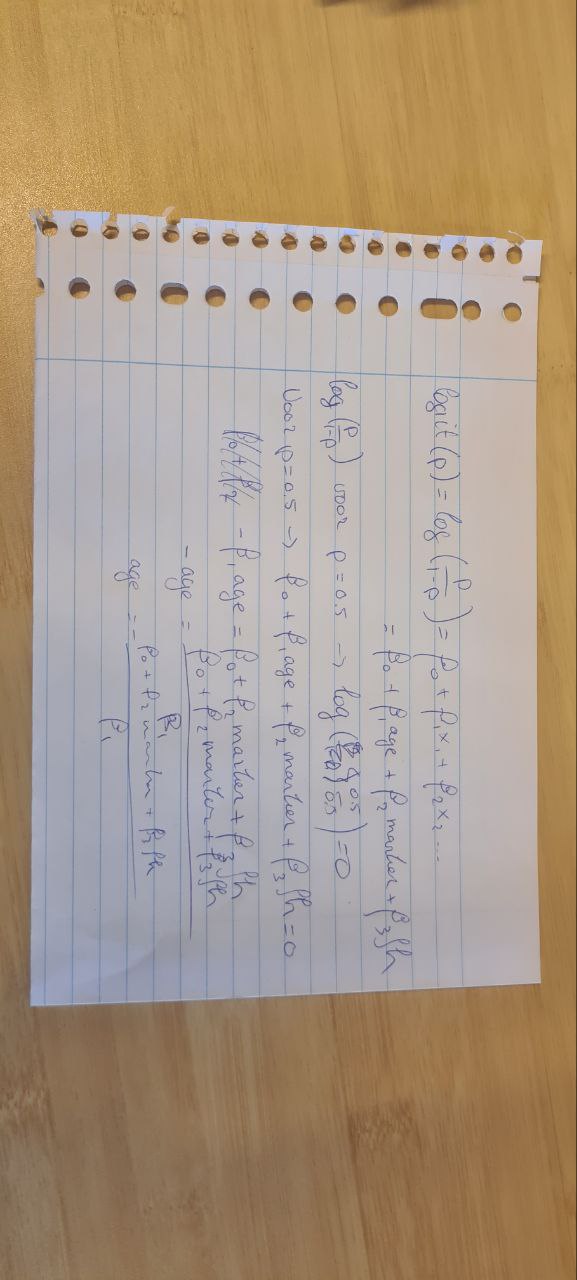 logit(p) = log(p/1-p) = β₀ + β₁x₁ + β₂x₂ ...
= β₀ + β₁age + β₂ marker + β₃fh
log(p/1-p) voor p = 0.5 → log(0.5/0.5) = 0
Voor p=0.5 → β₀ + β₁age + β₂ marker + β₃fh = 0
-β₁age = β₀ + β₂ marker + β₃fh
-age = β₀ + β₂ marker + β₃fh / β₁
age = - β₀ + β₂ marker + β₃fh / β₁